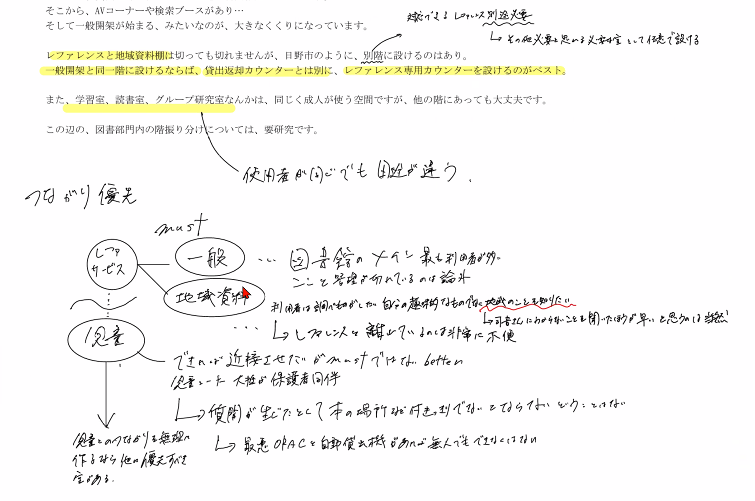 そこから、AVコーナーや検索ブースがあり…
そして一般開架が始まる、みたいなのが、大きなくくりになっています。
レファレンスと地域資料棚は切っても切れませんが、日野市のように、別階に設けるのはあり。
一般開架と同一階に設けるならば、貸出返却カウンターとは別に、レファレンス専用カウンターを設けるのがベスト。
また、学習室、読書室、グループ研究室なんかは、同じく成人が使う空間ですが、他の階にあっても大丈夫です。
この辺の、図書部門内の階振り分けについては、要研究です。
対応できるレファレンス別途必要
使用者が同じでも目的が違う
つながり優先
must
レファサービス
一般
… 図書館のメイン 最も利用者が多い
ここと管理が切れているのは論外
地域資料
地域のことを知りたい
…
レファレンスと離れているのは非常に不便
児童
できれば近接させたいがmustではない better
児童コーナー 大抵が保護者同伴
質問が生じたとして本の場所など付きっきりでないとならないということはない
最悪OPACと自動貸出機があれば無人でもできなくはない
児童とのつながりを無理に
作るなら他に優先すべき
室がある